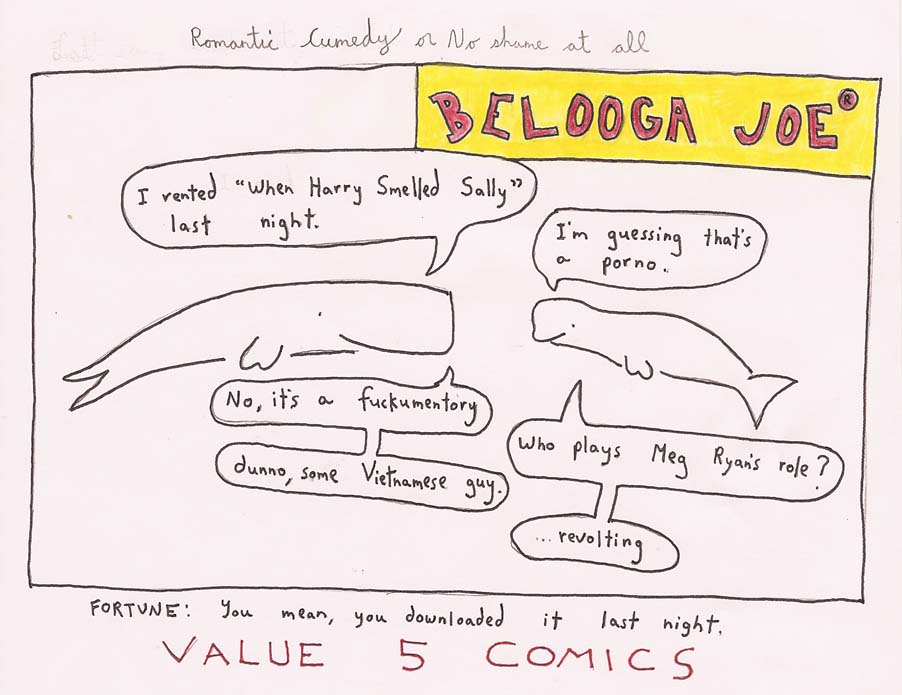 Romantic Cumedy or No shame at all
BELOOGA JOE®
I rented "When Harry Smelled Sally"
last night.
I'm guessing that's
a porno..
No, it's a fuckumentory
Who plays Meg Ryan's role?
dunno, some Vietnamese guy.
...revolting
FORTUNE: You mean, you downloaded it last night.
VALUE 5 COMICS